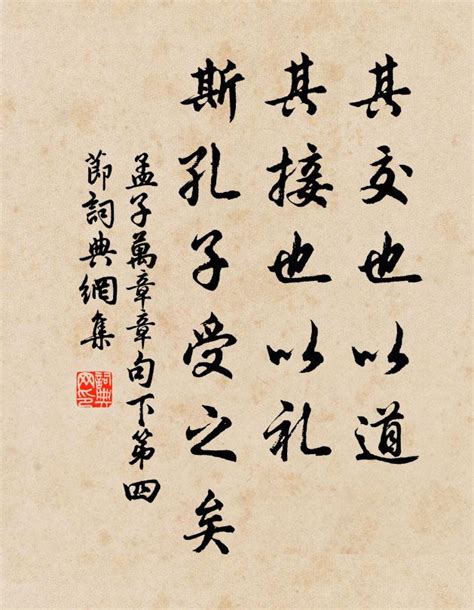 其交也以道
其接也以礼
斯孔子受之矣
孟子萬章章句下第四
節詞典網集
詞典
网印